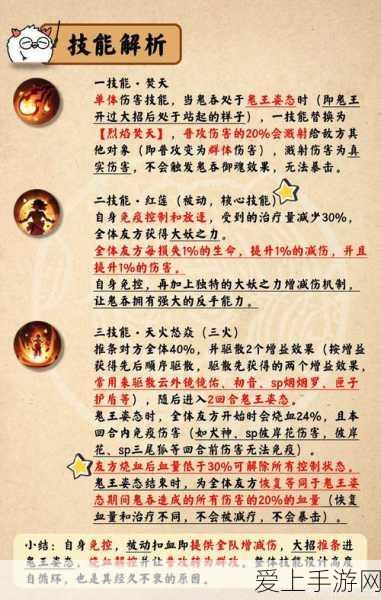 技能解析
一技能·焚天
单体伤害技能，当鬼吞处于鬼王姿态时（即鬼王
开过大招后处于站起的样子），一技能替换为
【烈焰焚天】，普攻伤害的20%会溅射给敌方其
他对象（即普攻变为群体伤害），溅射伤害为真
实伤害，不会触发鬼吞御魂效果，无法暴击。
二技能·红莲（被动，核心技能）
自身免疫控制和放逐，受到的治疗量减少30%，
全体友方获得大妖之力。
全体友方每损失1%的生命，提升1%的减伤，并且
提升1%的伤害。
自身免控，再加上独特的大妖之力增减伤机制，
让鬼吞拥有强大的反手能力。
三技能·天火怒焱（三火）
推条对方全体40%，并驱散2个增益效果（按增益
获得先后顺序驱散，驱散先获得的两个增益效果，
常用来驱散云外镜镜佑、初音、sp烟烟罗、匣子
护盾等），随后进入2回合鬼王姿态。
鬼王姿态时，全体友方开始时会烧血24%，且本
回合内免疫伤害（如犬神、sp彼岸花伤害，彼岸
花、sp三尾狐等四合前伤害无法免疫）。
友方烧血后血量低于30%可解除所有控制状态。
鬼王姿态结束时，为全体友方恢复等同于鬼王姿
态期间鬼吞造成的所有伤害的20%的血量（恢复
血量和治疗不同，不会被减疗，不会暴击）。
小结：自身免控，被动和血即提供全队增减伤，大招推条进
鬼王姿态，烧血解控并让普攻转为群攻。整体技能设计高度
自循环，也是其经久不衰的原因。
爱上手游网